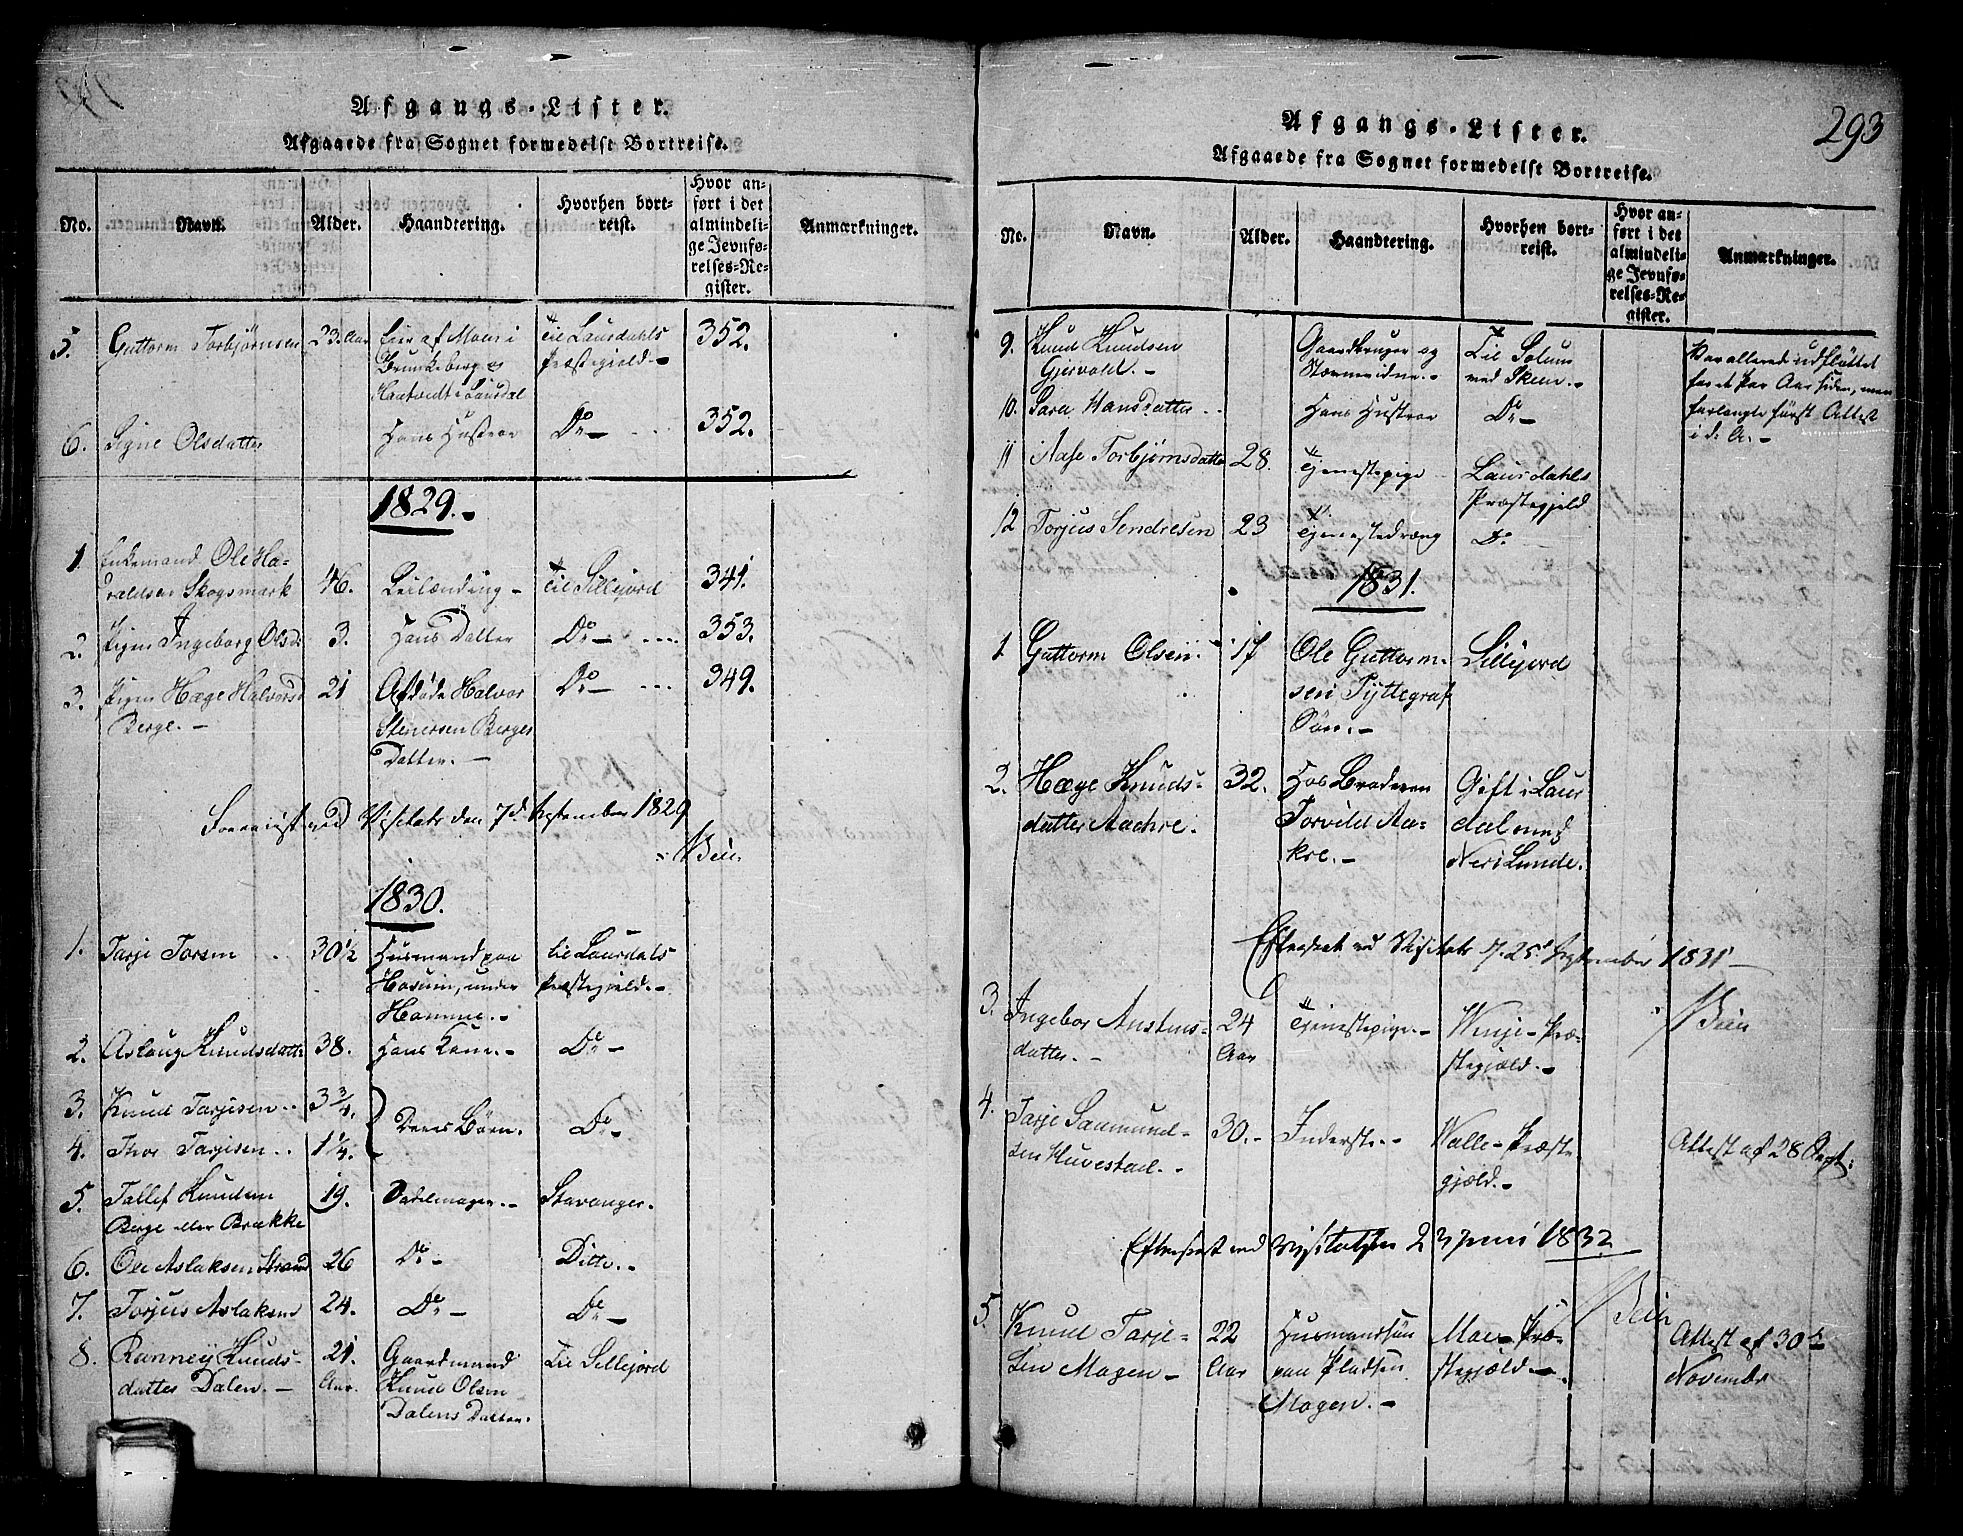 Afgangs-Lister.
Afgaaede fra Sognet formedelst Bortreise.
No. Navn. Alder. Haandtering. Hvorhen bortreist. Hvor anført i det almindelige Jevnførelses-Register. Anmærkninger.
5. Guttorm Torbjørnsen 23 Aar Leer af Moen i Brunkeberg og Hautvedt i Laurdal Til Laurdahls Præstegjeld.- 352.
6. Signe Olsdatter Hans Hustroe Do- 352.
1829.-
1. Enkemand Ole Havaldsen Skogsmark 46. Leilænding- Til Sillejord 341.
2. Pigen Ingeborg Olsd. 3. Hans Datter Do- 353.
3. Pigen Hæge Halvorsd. Berge.- 21 Afdøde Halvor Stenersen Berges Datter.- Do- 349.
Foreviist ved Visitats den 7d September 1829
Beiu
1830.
1. Tarje Torsen 30½ Husmand paa Hosum, under Homme.- til Laurdals Præstegjeld.-
2. Aslaug Knudsdatter 38. Hans Kone.- Do-
3. Knud Tarjesen.. 3¾. Deres Børn. Do-
4. Thor Tarjesen.. 1¼.
5. Tallef Knudsen Berge eller Brække 19. Dadelmager.- Stavanger.
6. Ole Aslaksen Strand 26 Do- Ditto.-
7. Torjus Aslaksen 24. Do- Do-
8. Ranneij Knudsdatter Dalen.- 21. Aar. Gaardmand Knud Olsen Dalens Datter. Til Sillejord
Afgangs-Lister.
293
Afgaaede fra Sognet formedelst Bortreise.
No. Navn. Alder. Haandtering. Hvorhen bortreist. Hvor anført i det almindelige Jevnførelses-Register. Anmærkninger.
9. Knud Knudsen Gjervold.- Gaardbruger og Til Solum ved Skeen.- Var allerede udflÿttet for et Par Aar siden, men forlangte først Attest i d. A.-
10. Sara Hansdatter.. Hans Hustroe Do-
11 Aase Torbjørnsdatter 28. Tjenestepige Laurdahls Præstegjeld
12 Torjus Sendresen 23 Tjenestedræng Do
1831.
1 Guttorm Olsen. 17 Ole Guttormsen Tÿttegraf Søn.- Sillejord
2. Hæge Knudsdatter Aachre. 32. Hos Broderen Torvild Aakre.- Gift i Laurdal med Neri Lunde.
Efterseet ved Visitats d. 25d September 1831-
Beiu
3. Ingebor Austensdatter.- 24 Aar Tjenestepige.- Winje-Præstegjæld.-
4. Tarje Saamundsen Huvestad.- 30.- Inderste.- Walle-Præstegjæld.- Attest af 28 Sept:
Efterseet ved Visitatsen 23 Juni 1832
Beiu
5. Knud Tarjesen Mogen- 22 Aar Husmandssøn paa Pladsen Mogen.- Moe-Præstegjæld-. Attest af 30te November